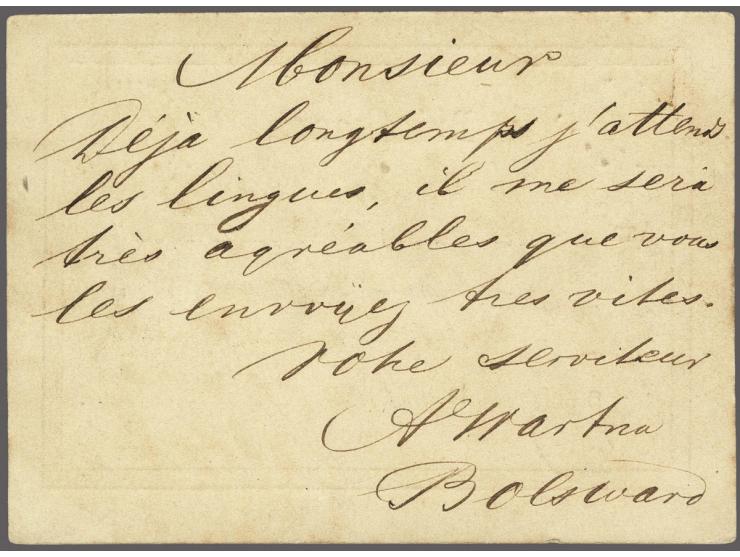 Monsieur
Déjà longtemps j'attends
les lingues, il me sera
très agréables que vous
les envoÿez tres vites.
votre serviteur
A Wartna
Bolsward